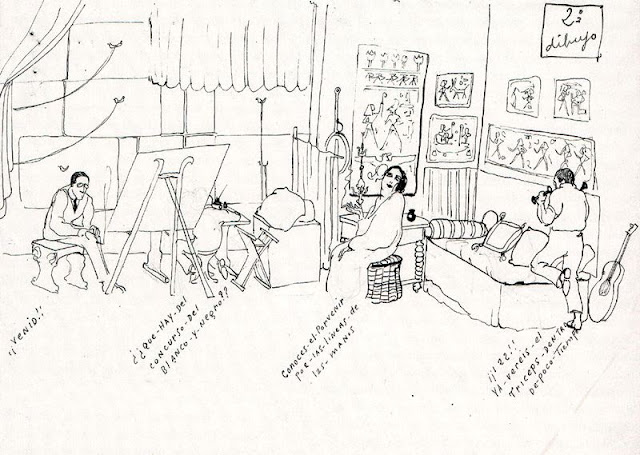 2º
dibujo
¡¡VENID!!
¿¿QUE-HAY-DEL
CONCURSO-DEL
BLANCO-y-NEGRO??
CONOCES-el-PORVENIR
POR-LAS-LINEAS-de
las-MANOS
¡¡22!!
YA-veréis-el
TRICEPS-DENTRO
De-poco-Tiempo